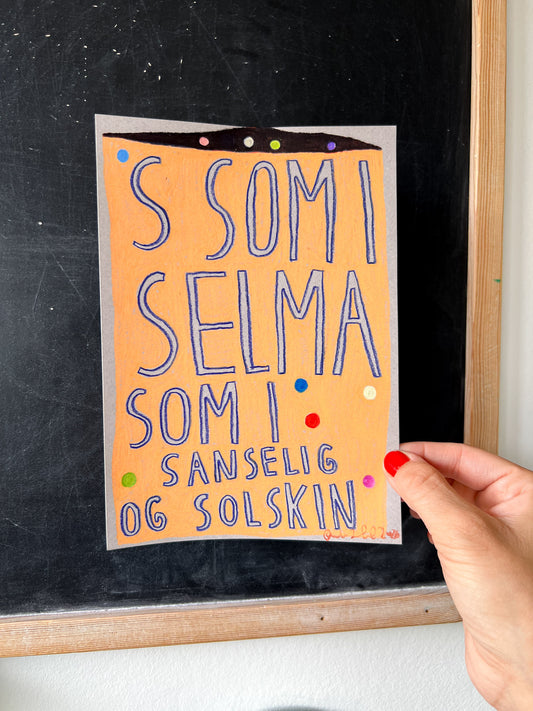 S SOM I
SELMA
SOM I
SANSELIG
OG SOLSKIN